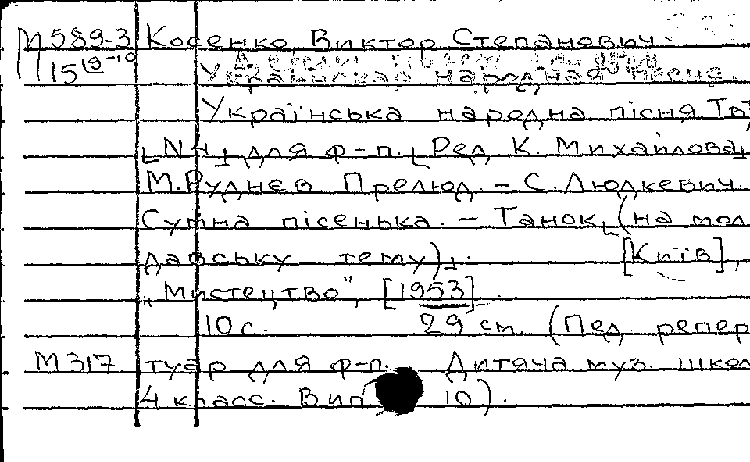 М 589-3 Косенко, Виктор Степанович.
15 19-10 Украинская народная песня.
Українська народна пісня. Тв
[№ 4] для ф-п. [Ред. К. Михайлова]
М. Руднєв Прелюд. – С. Людкевич.
Сумна пісенька. – Танок [(на мол
давську тему)]. [Київ],
„Мистецтво", [1953].
10 с. 29 см. (Пед. репер
М 317 туар для ф-п. Дитяча муз. школ
4 класс. Вип. 10).